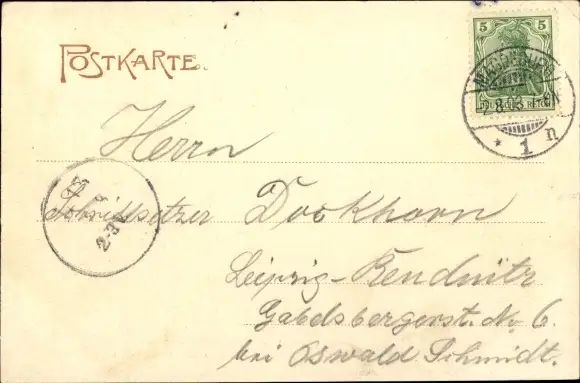 POSTKARTE.
5 5
MAGDEBURG
DEUTSCHES REICH
* 1 n
Herrn
Schriftsetzer Dockhorn
Leipzig-Reudnitz
Gabelsbergerst. No 6.
bei Oswald Schmidt.